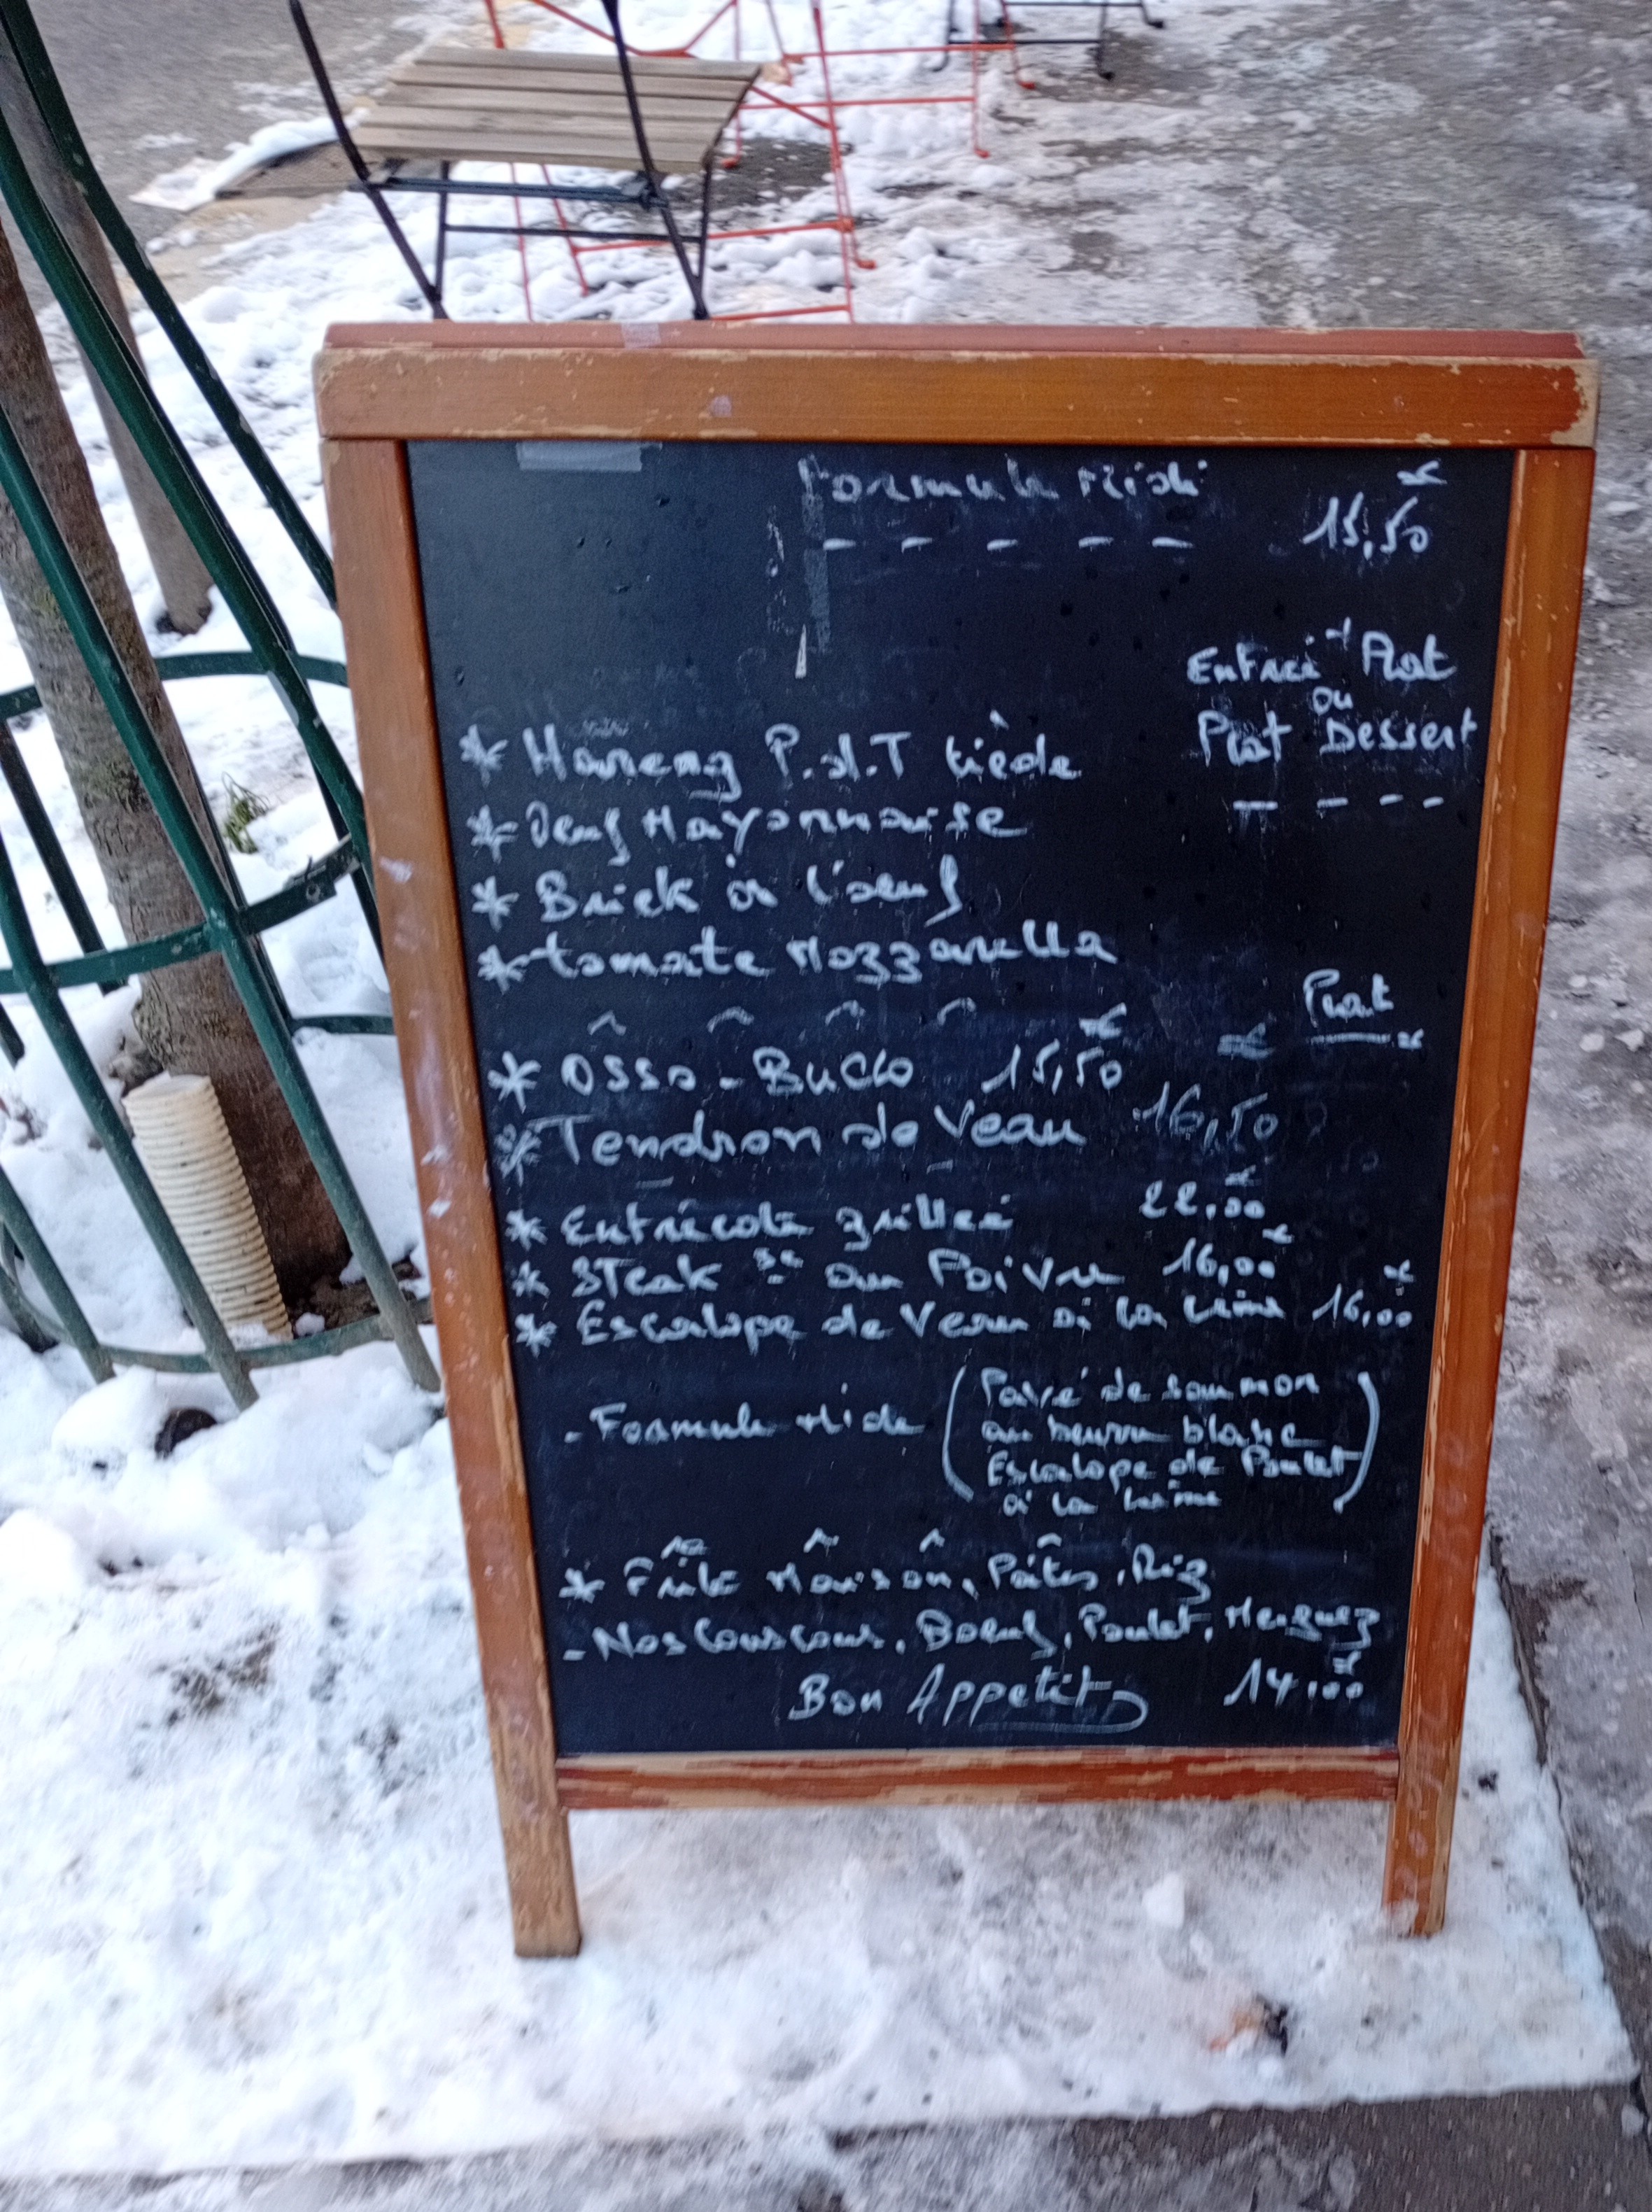 Formule Midi
15,50 €
Entrée + Plat
ou
Plat Dessert
* Hareng P.d.T tiède
* Oeuf Mayonnaise
* Brick à l'oeuf
* tomate Mozzarella
Plat
* Osso-Bucco 15,50 €
* Tendron de Veau 16,50
* Entrécote grillée 22,00 €
* STeak au Poivre 16,00 €
* Escalope de Veau à la crème 16,00 €
- Formule Midi (Pavé de saumon
au beurre blanc
Escalope de Poulet
à la crème)
* Frite Maison, Pâtes, Riz
- Nos Couscous, Boeuf, Poulet, Merguez
Bon Appetit 14,00 €